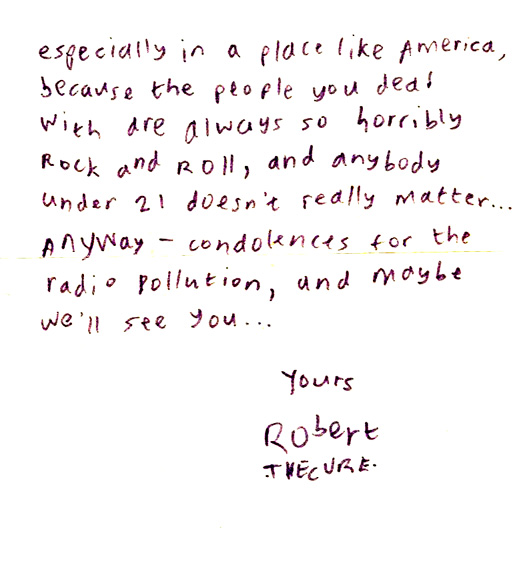 especially in a place like America,
because the people you deal
with are always so horribly
Rock and Roll, and anybody
under 21 doesn't really matter...
Anyway – condolences for the
radio pollution, and maybe
we'll see you...
Yours
Robert
THECURE.